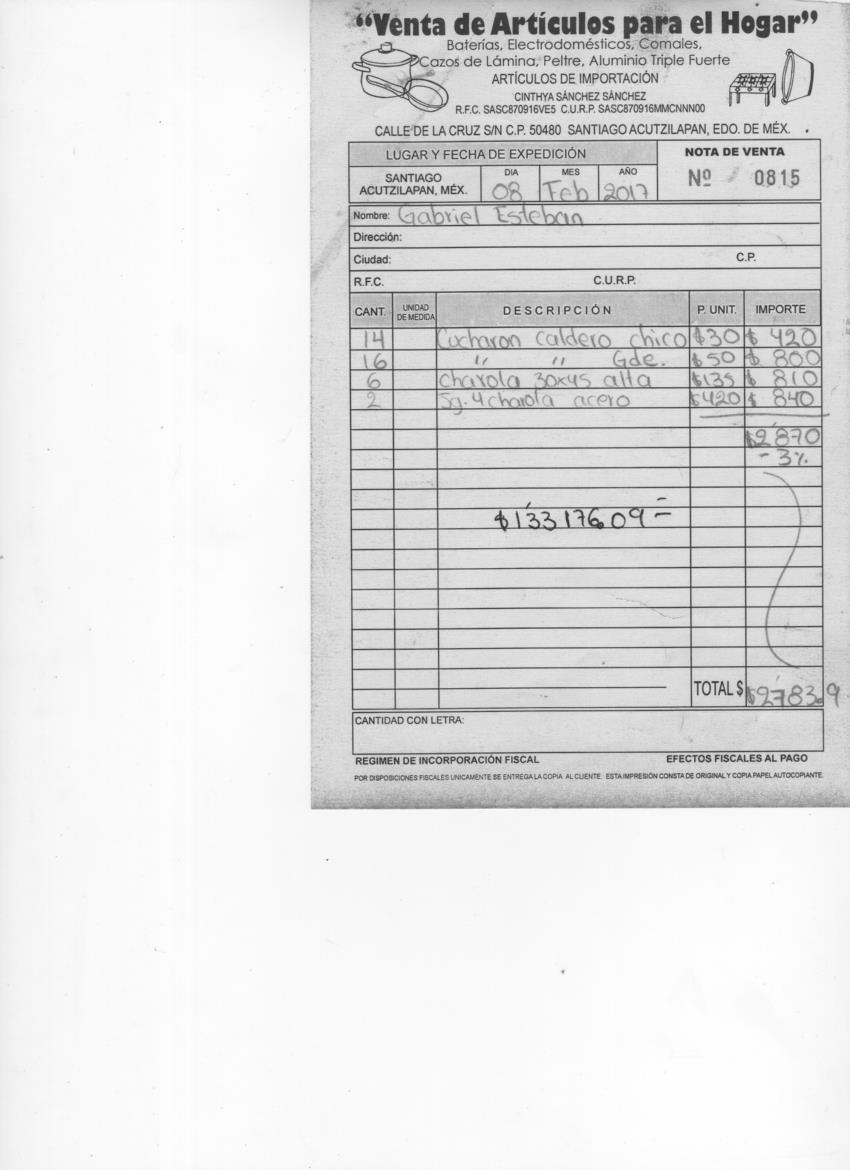 "Venta de Artículos para el Hogar"
Baterías, Electrodomésticos, Comales,
Cazos de Lámina, Peltre, Aluminio Triple Fuerte
ARTÍCULOS DE IMPORTACIÓN
CINTHYA SÁNCHEZ SÁNCHEZ
R.F.C. SASC870916VE5 C.U.R.P. SASC870916MMCNNN00
CALLE DE LA CRUZ S/N C.P. 50480 SANTIAGO ACUTZILAPAN, EDO. DE MÉX.
LUGAR Y FECHA DE EXPEDICIÓN
NOTA DE VENTA
SANTIAGO ACUTZILAPAN, MÉX.
DIA MES AÑO
08 Feb 2017
Nº 0815
Nombre: Gabriel Esteban
Dirección:
Ciudad: C.P.
R.F.C. C.U.R.P.
CANT. UNIDAD DE MEDIDA DESCRIPCIÓN P. UNIT. IMPORTE
14 Cucharon caldero chico $30 $ 420
16 ,, ,, Gde. $50 $ 800
6 charola 30x45 alta $135 $ 810
2 Jg. 4 charola acero $420 $ 840
$2'870
- 3%
$1'33176.09=
TOTAL $ $2783.9
CANTIDAD CON LETRA:
REGIMEN DE INCORPORACIÓN FISCAL EFECTOS FISCALES AL PAGO
POR DISPOSICIONES FISCALES UNICAMENTE SE ENTREGA LA COPIA AL CLIENTE. ESTA IMPRESIÓN CONSTA DE ORIGINAL Y COPIA PAPEL AUTOCOPIANTE.